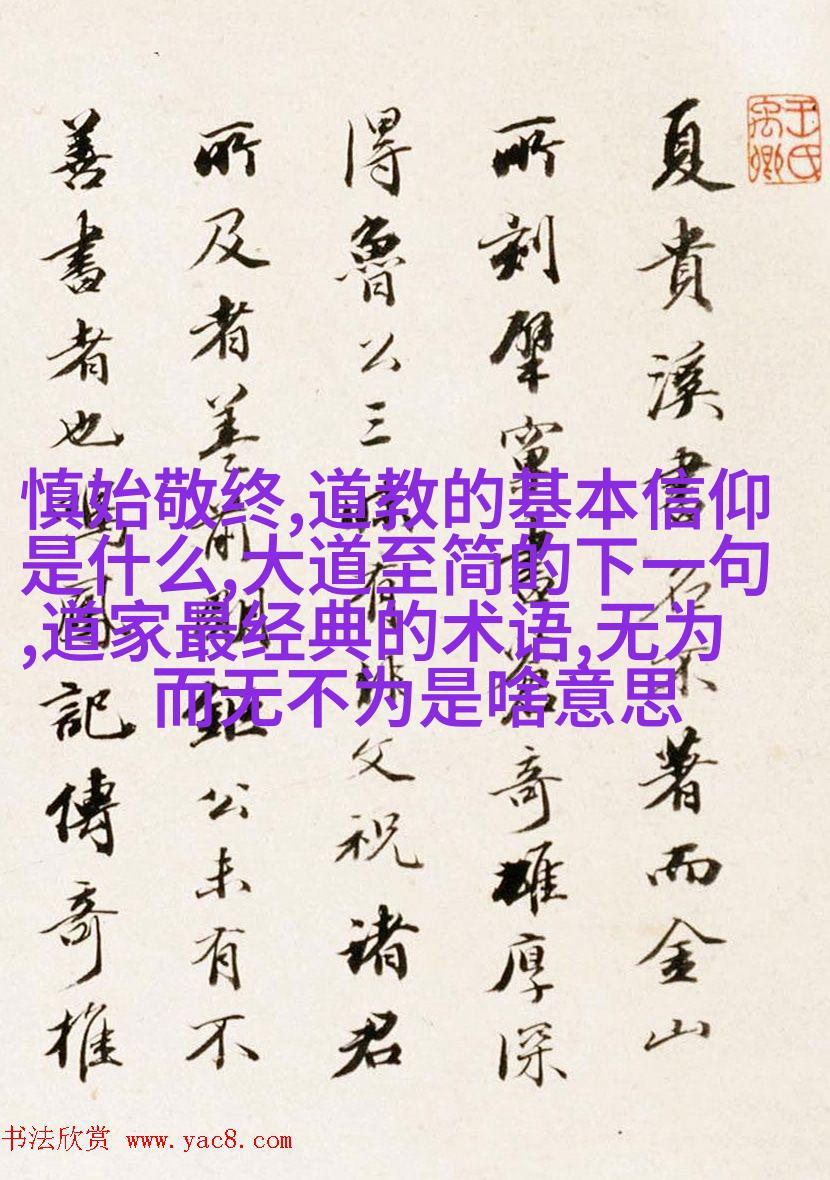 王氏
禹卿
夏貴溪書名不著而金山
所刻擘窠書奇雄厚深
得魯公三昧有非文祝諸君
所及者蓋前朝鉅公未有不
善書者也圖記傳奇推
慎始敬终,道教的基本信仰
是什么,大道至简的下一句
,道家最经典的术语,无为
而无不为是啥意思
书法欣赏 www.yac8.com